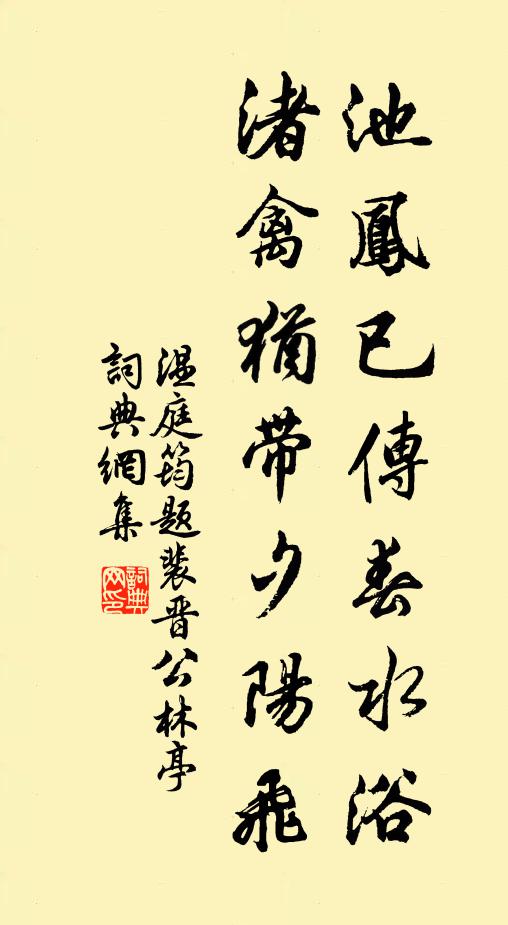 池鳳已傳春水浴
渚禽猶帶夕陽飛
温庭筠题裴晋公林亭
詞典網集
詞典网印